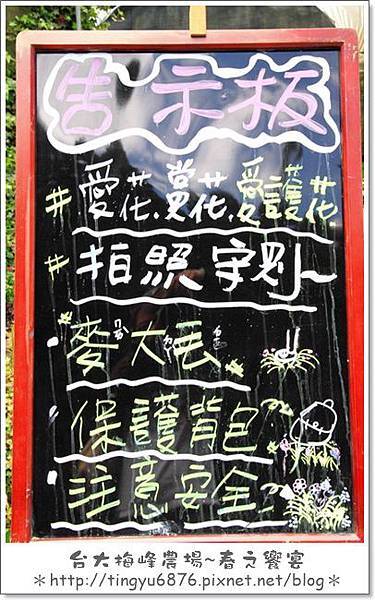 告示板
# 愛花.賞花.愛護花
# 拍照守則~
麥大丟
保護背包
注意安全
台大梅峰農場~春之饗宴
*http://tingyu6876.pixnet.net/blog*